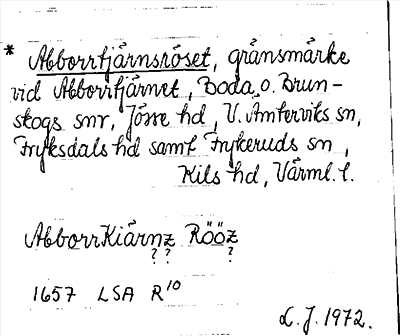 * Abborrtjärnsröset, gränsmärke
vid Abborrtjärnet, Boda o. Brun-
skogs snr, Jösse hd, V. Ämterviks sn,
Fryksdals hd samt Frykeruds sn,
Kils hd, Värml. l.
AbborrKiärnz Rööz
? ? ?
1657 LSA R10
L. J. 1972.